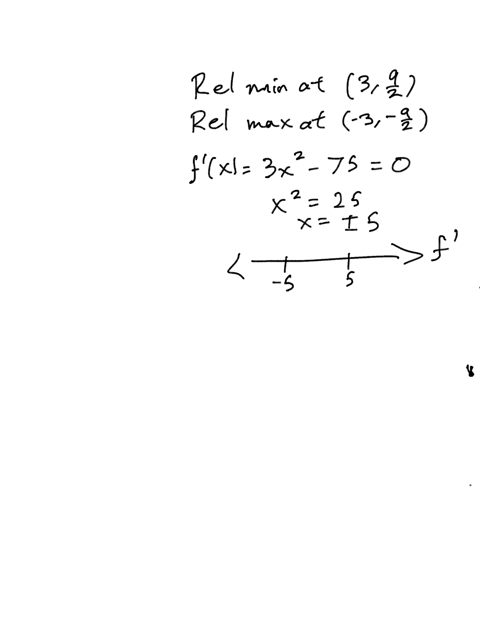 Rel min at (3, 9/2)
Rel max at (-3, -9/2)
f'(x) = 3x² - 75 = 0
x² = 25
x = ±5
f'
-5 5